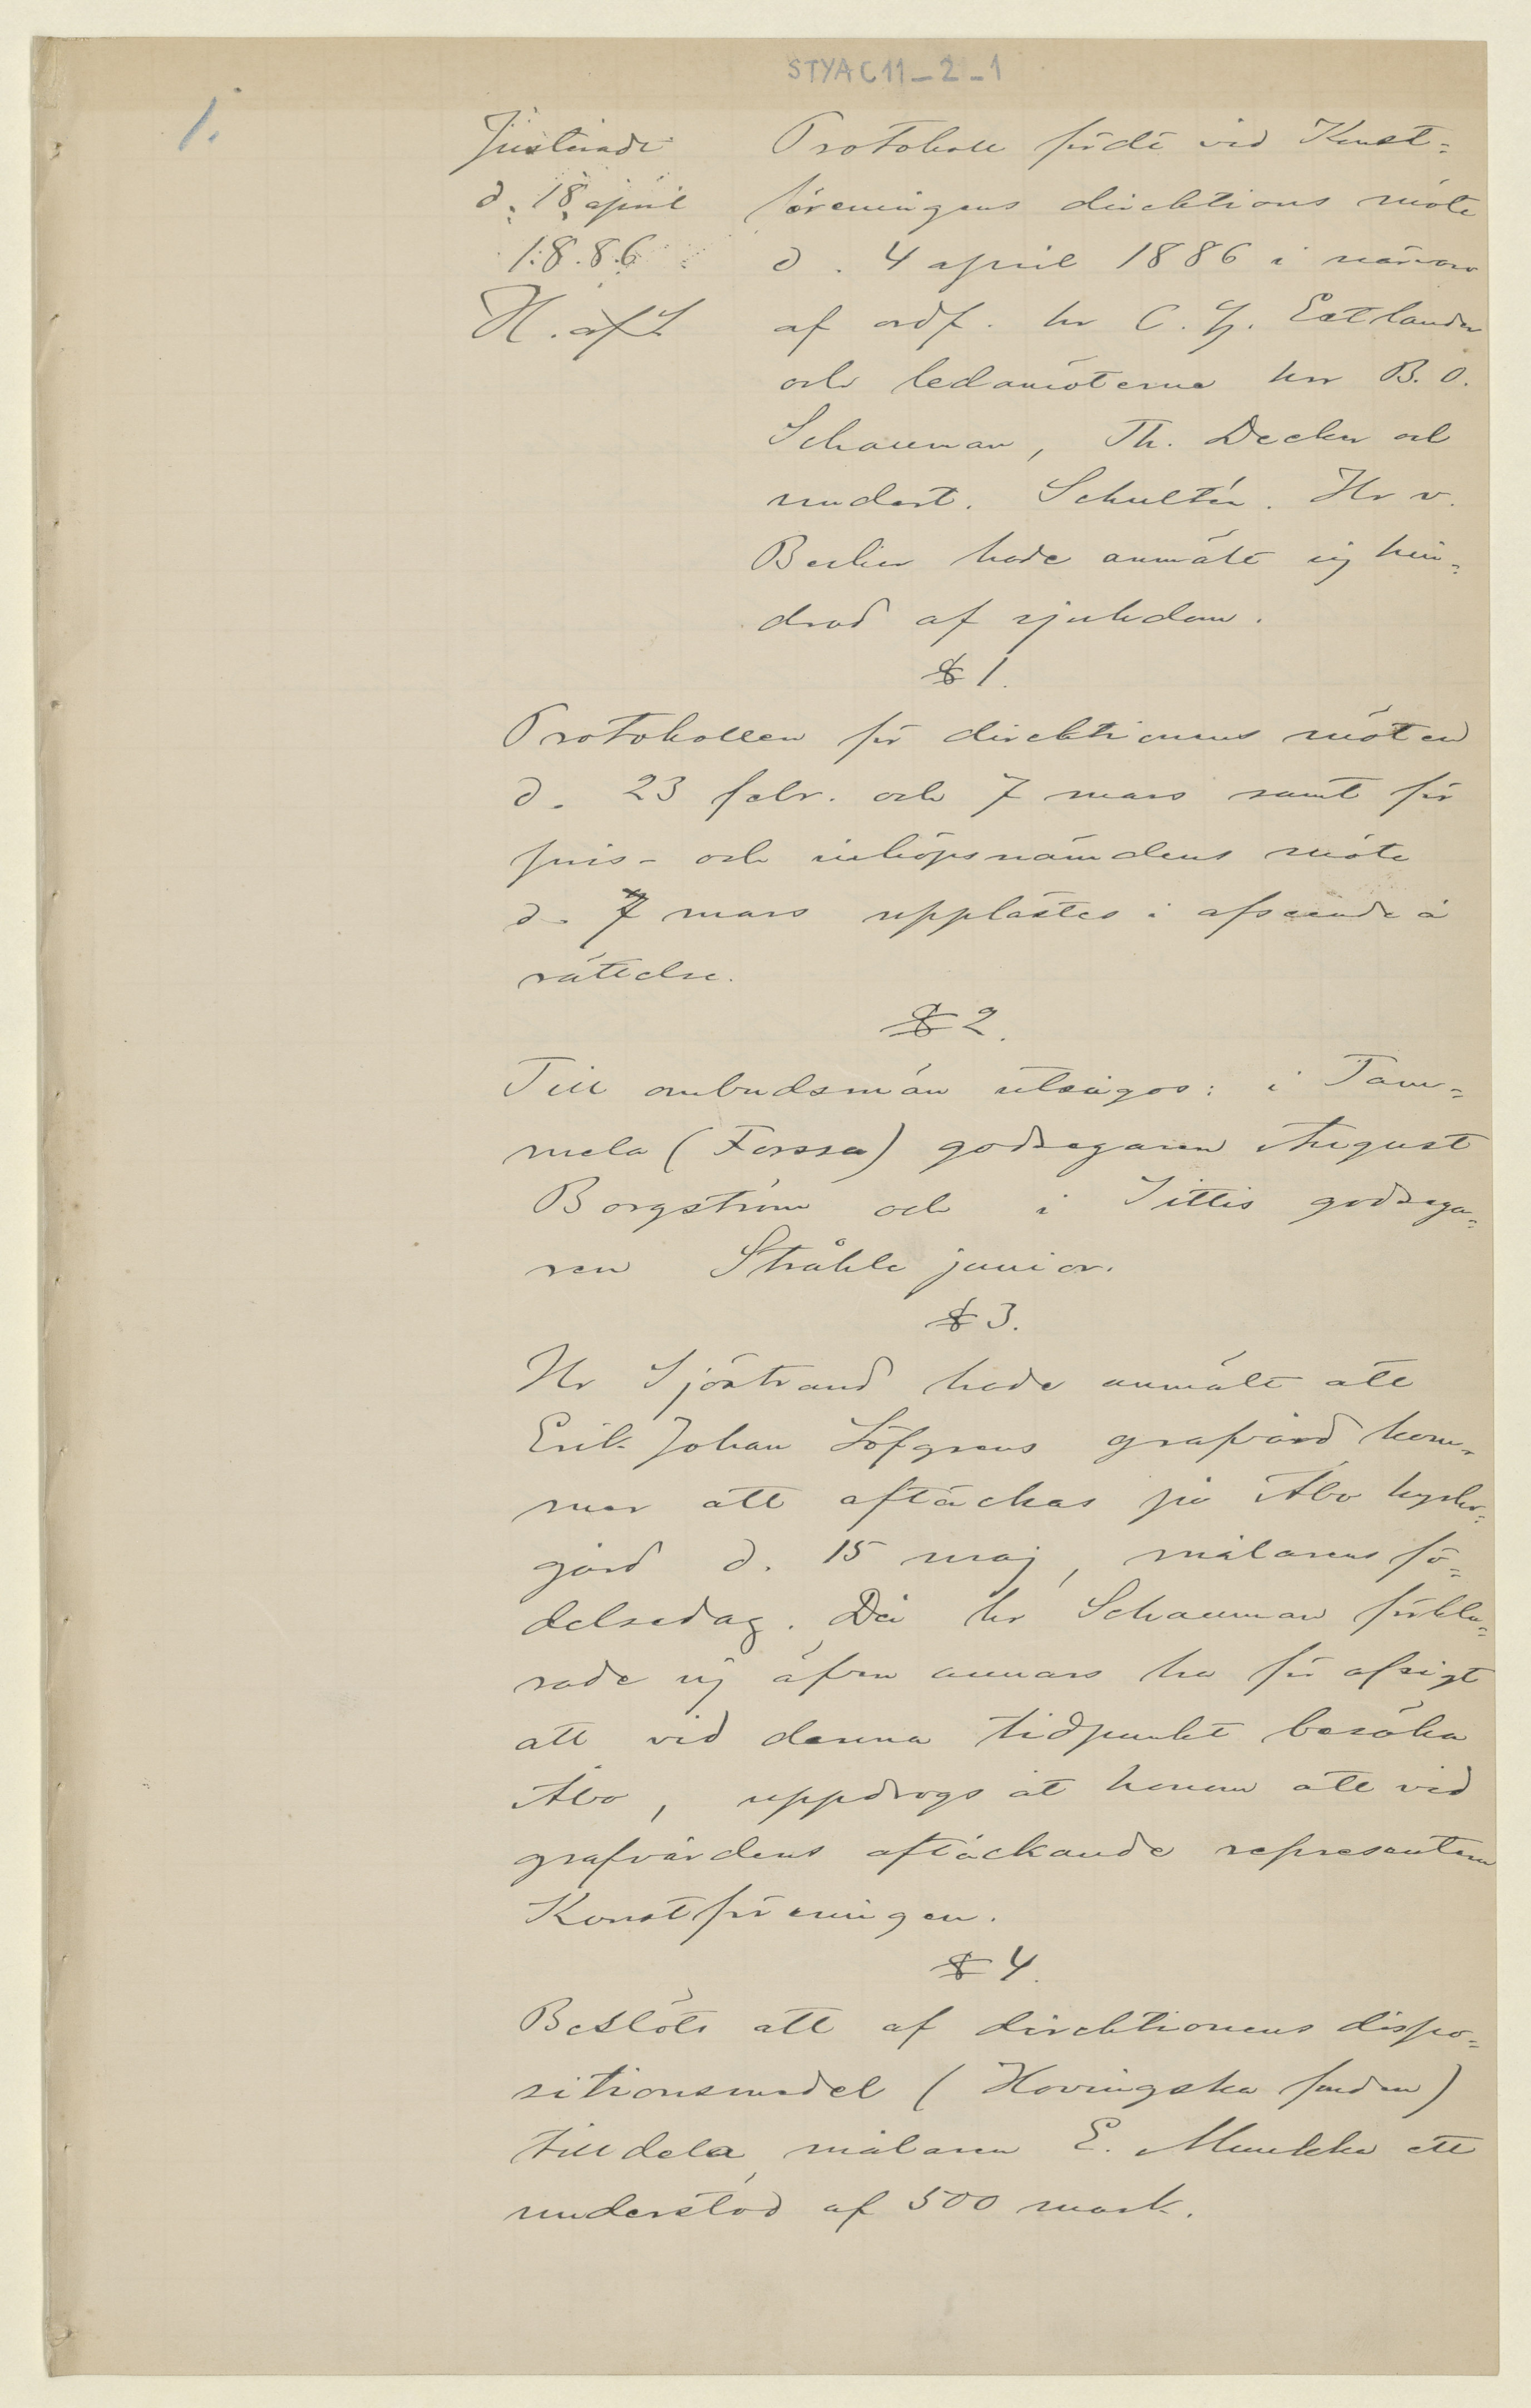 STYAC11_2_1
1.
Justerade
d. 18 april
1886
H. af S
Protokoll fördt vid Konst-
föreningens direktions möte
d. 4 april 1886 i närvaro
af ordf. hr C. G. Estlander
och ledamöterna hrr B. O.
Schauman, Th. Decker och
undert. Schultén. Hr v.
Becker hade anmält sig hin-
drad af sjukdom.
§ 1.
Protokollen för direktionens möten
d. 23 febr. och 7 mars samt för
pris- och inköpsnämdens möte
d. 7 mars upplästes i afseende å
rättelse.
§ 2.
Till ombudsmän utsågos: i Tam-
mela (Forssa) godsegaren August
Borgström och i Sittis godsega-
ren Stråhle junior.
§ 3.
Hr Sjöstrand hade anmält att
Erik Johan Löfgrens grafvård kom-
mer att aftäckas på Åbo kyrko-
gård d. 15 maj, målarens fö-
delsedag. Då hr Schauman förkla-
rade sig äfven annars ha för afsigt
att vid denna tidpunkt besöka
Åbo, uppdrogs åt honom att vid
grafvårdens aftäckande representera
Konstföreningen.
§ 4.
Beslöts att af direktionens dispo-
sitionsmedel (Hovingska fonden)
tilldela målaren E. Muukka ett
understöd af 500 mark.